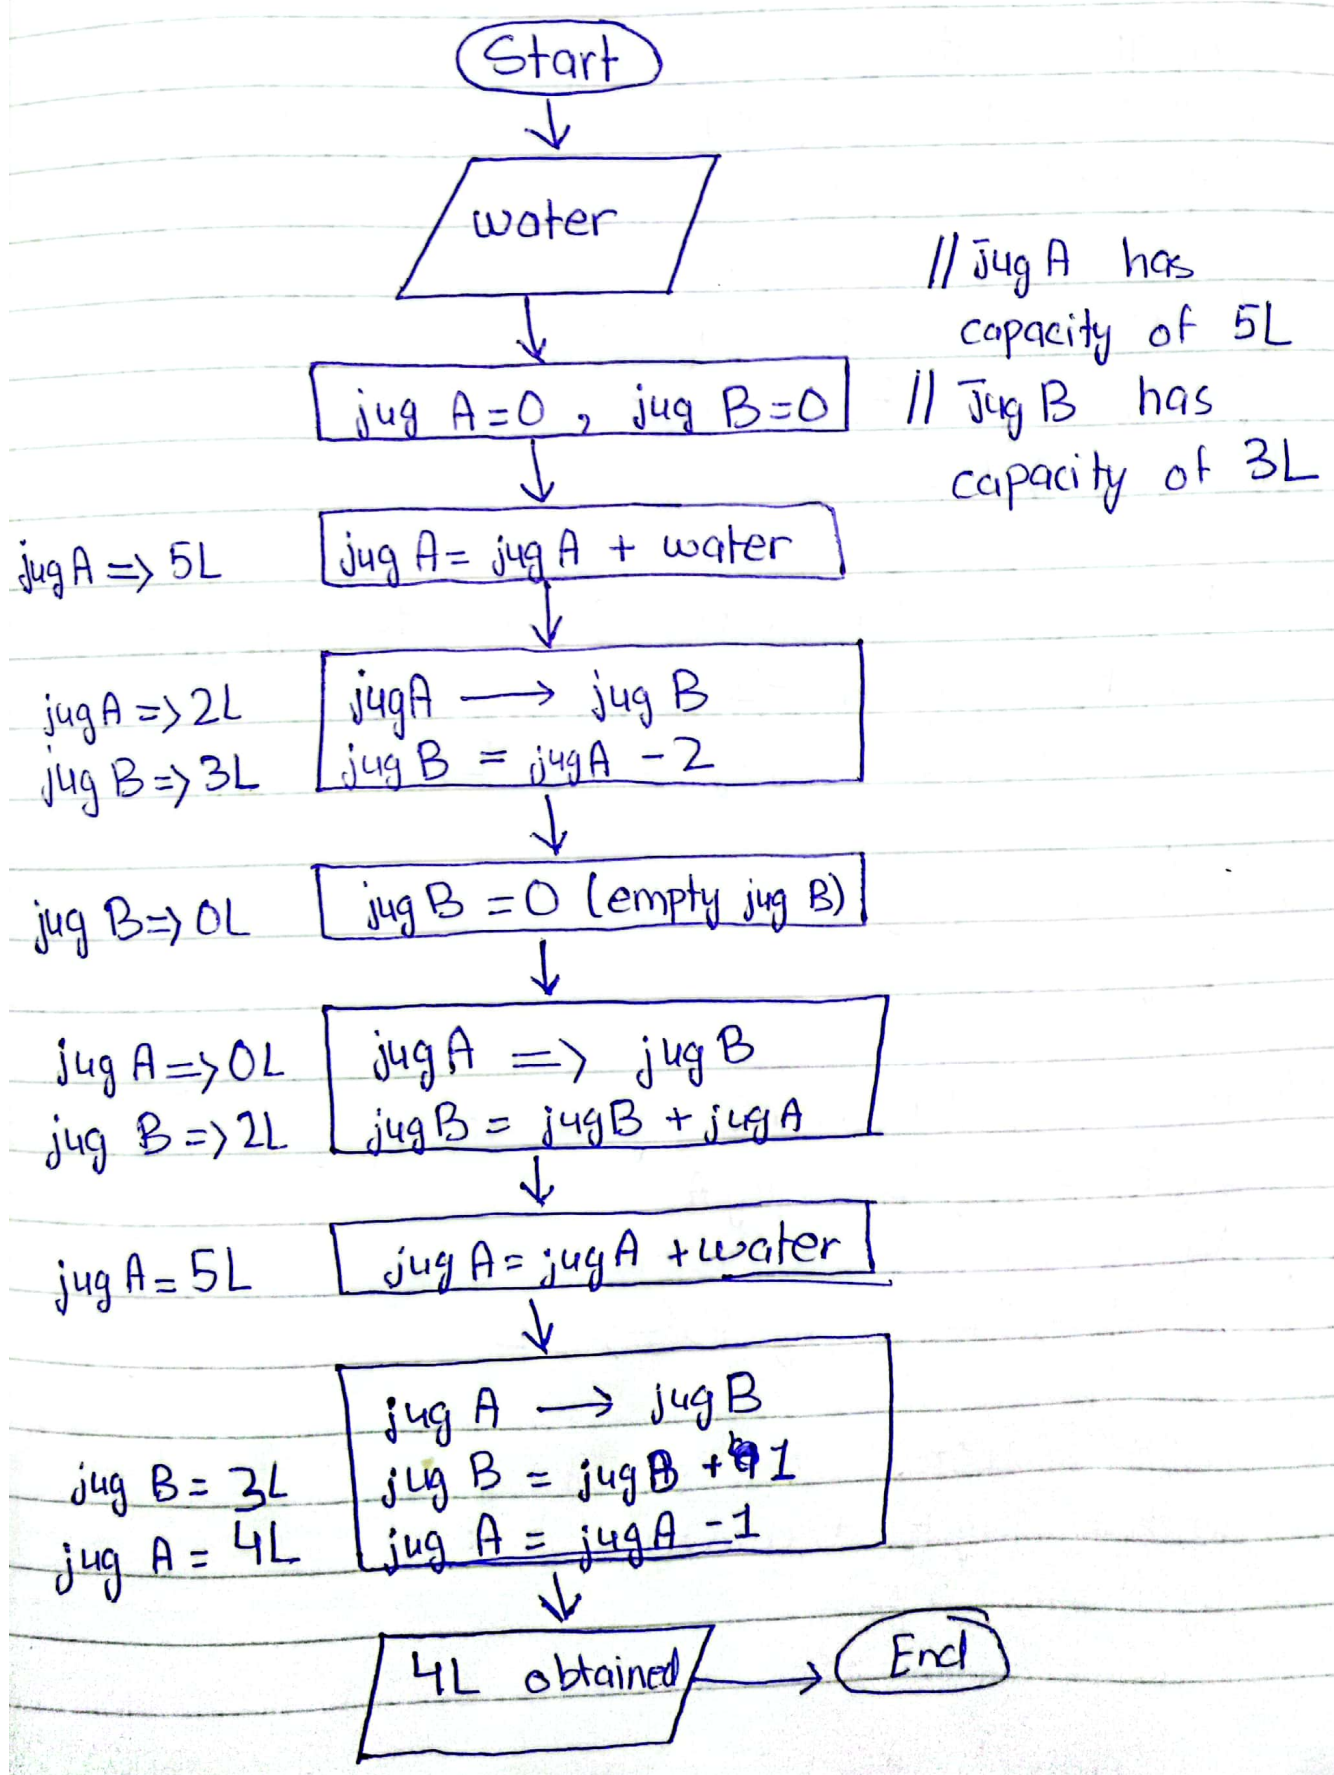 Start
water
// Jug A has
capacity of 5L
jug A=0, jug B=0
// Jug B has
capacity of 3L
jug A => 5L
jug A = jug A + water
jug A => 2L
jug B => 3L
jug A → jug B
jug B = jug A - 2
jug B => 0L
jug B = 0 (empty jug B)
jug A => 0L
jug B => 2L
jug A => jug B
jug B = jug B + jug A
jug A = 5L
jug A = jug A + water
jug B = 3L
jug A = 4L
jug A → jug B
jug B = jug B + 1
jug A = jug A - 1
4L obtained
End